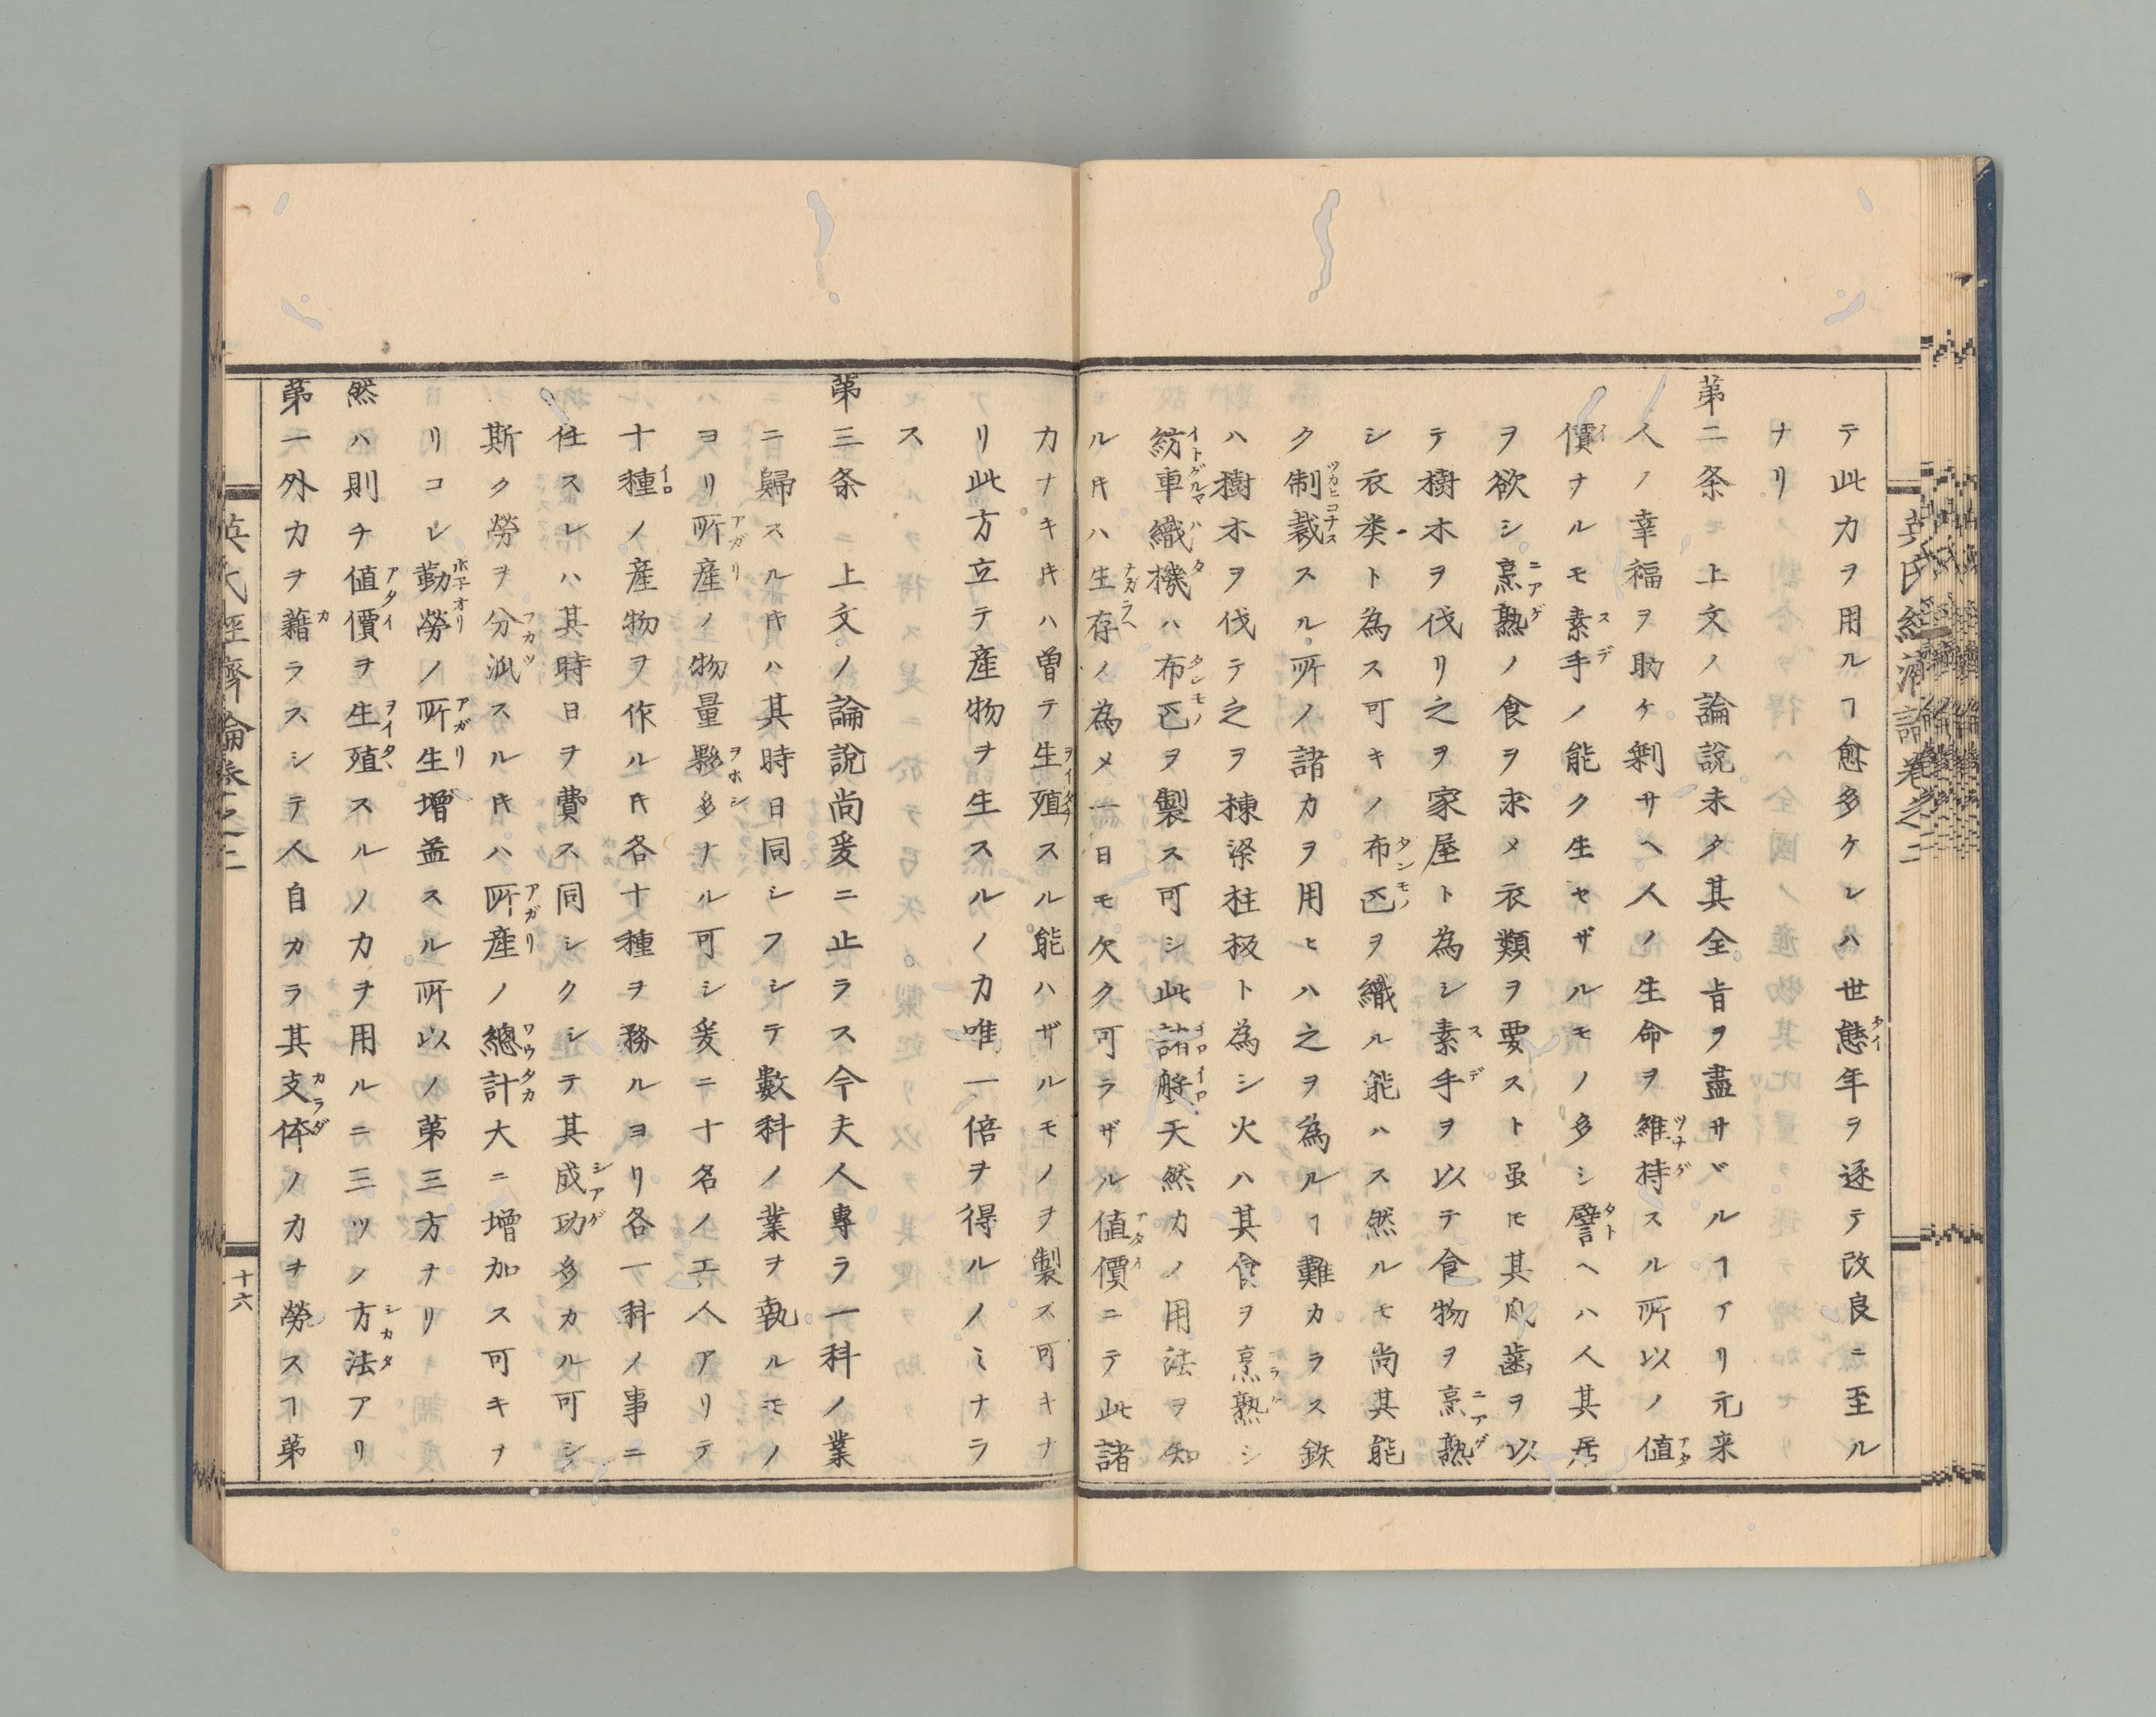 テ此力ヲ用ルヿ愈多ケレハ世態年ヲ逐テ改良ニ至ル
ナリ
第二条 上文ノ論說未タ其全旨ヲ盡サヾルヿアリ元来
人ノ幸福ヲ助ケ剰サヘ人ノ生命ヲ維持スル所以ノ値
價ナルモ素手ノ能ク生セザルモノ多シ譬ヘハ人其居
ヲ欲シ烹熟ノ食ヲ求メ衣類ヲ要スト虽𪜈其爪齒ヲ以
テ樹木ヲ伐リ之ヲ家屋ト為シ素手ヲ以テ食物ヲ烹熟
シ衣类ト為ス可キノ布疋ヲ織ル能ハス然ルモ尚其能
ク制裁スル所ノ諸力ヲ用ヒハ之ヲ為ルヿ難カラス鉄
ハ樹木ヲ伐テ之ヲ棟梁柱极ト為シ火ハ其食ヲ烹熟シ
紡車織機ハ布疋ヲ製ス可シ此諸般天然力ノ用法ヲ知
ルキハ生存ノ為メ一日モ欠ク可ラザル値價ニテ此諸
力ナキキハ曽テ生殖スル能ハザルモノヲ製ス可キナ
リ此方立テ産物ヲ生スルノ力唯一倍ヲ得ルノミナラ
ス
第三条 上文ノ論說尚爰ニ止ラス今夫人專ラ一科ノ業
ニ歸スルキハ其時日同シフシテ數科ノ業ヲ執ルモノ
ヨリ所産ノ物量夥多ナル可シ爰ニ十名ノ工人アリテ
十種ノ産物ヲ作ルキ各十種ヲ務ルヨリ各一科ノ事ニ
任スレハ其時日ヲ費ス同シクシテ其成功多カル可シ
斯ク勞ヲ分派スルキハ所産ノ總計大ニ增加ス可キヲ
リコレ勤勞ノ所生增益スル所以ノ第三方ナリ
然ハ則チ値價ヲ生殖スルノ力ヲ用ルニ三ツノ方法アリ
第一外力ヲ藉ラスシテ人自カラ其支体ノ力ヲ勞スヿ第
英氏經濟論卷之二
十六